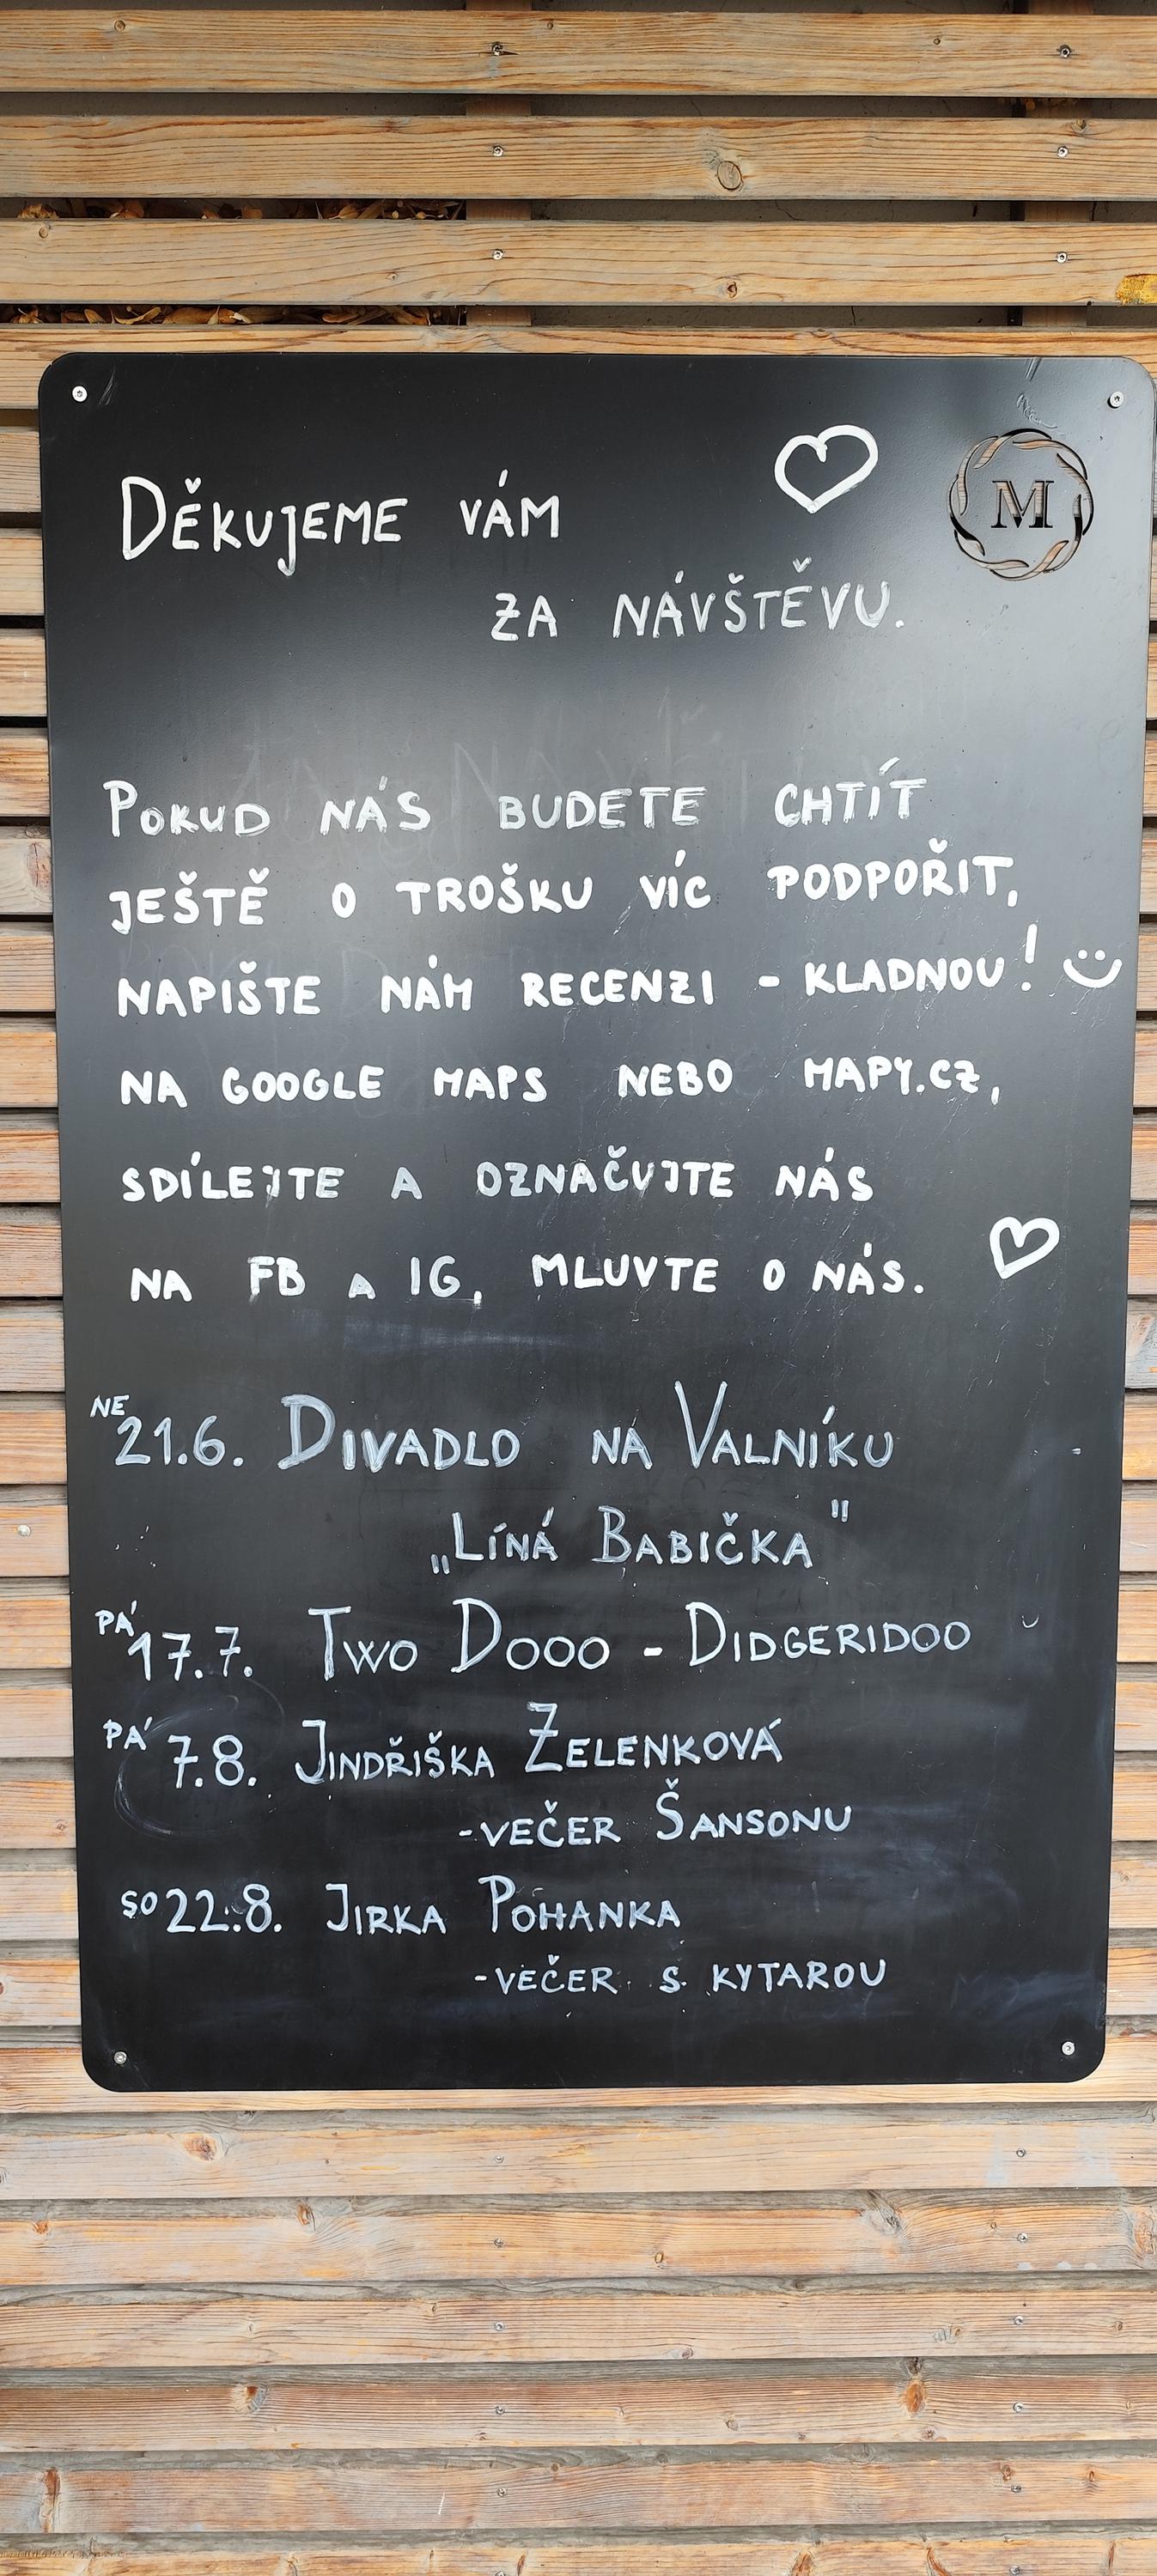 DĚKUJEME VÁM
M
ZA NÁVŠTĚVU.
POKUD NÁS BUDETE CHTÍT
JEŠTĚ O TROŠKU VÍC PODPOŘIT,
NAPIŠTE NÁM RECENZI - KLADNOU! :)
NA GOOGLE MAPS NEBO MAPY.CZ,
SDÍLEJTE A OZNAČUJTE NÁS
NA FB A IG, MLUVTE O NÁS.
NE 21.6. DIVADLO NA VALNÍKU
„LÍNÁ BABIČKA"
PÁ 17.7. TWO DOOO - DIDGERIDOO
PÁ 7.8. JINDŘIŠKA ZELENKOVÁ
-VEČER ŠANSONU
SO 22.8. JIRKA POHANKA
-VEČER S KYTAROU